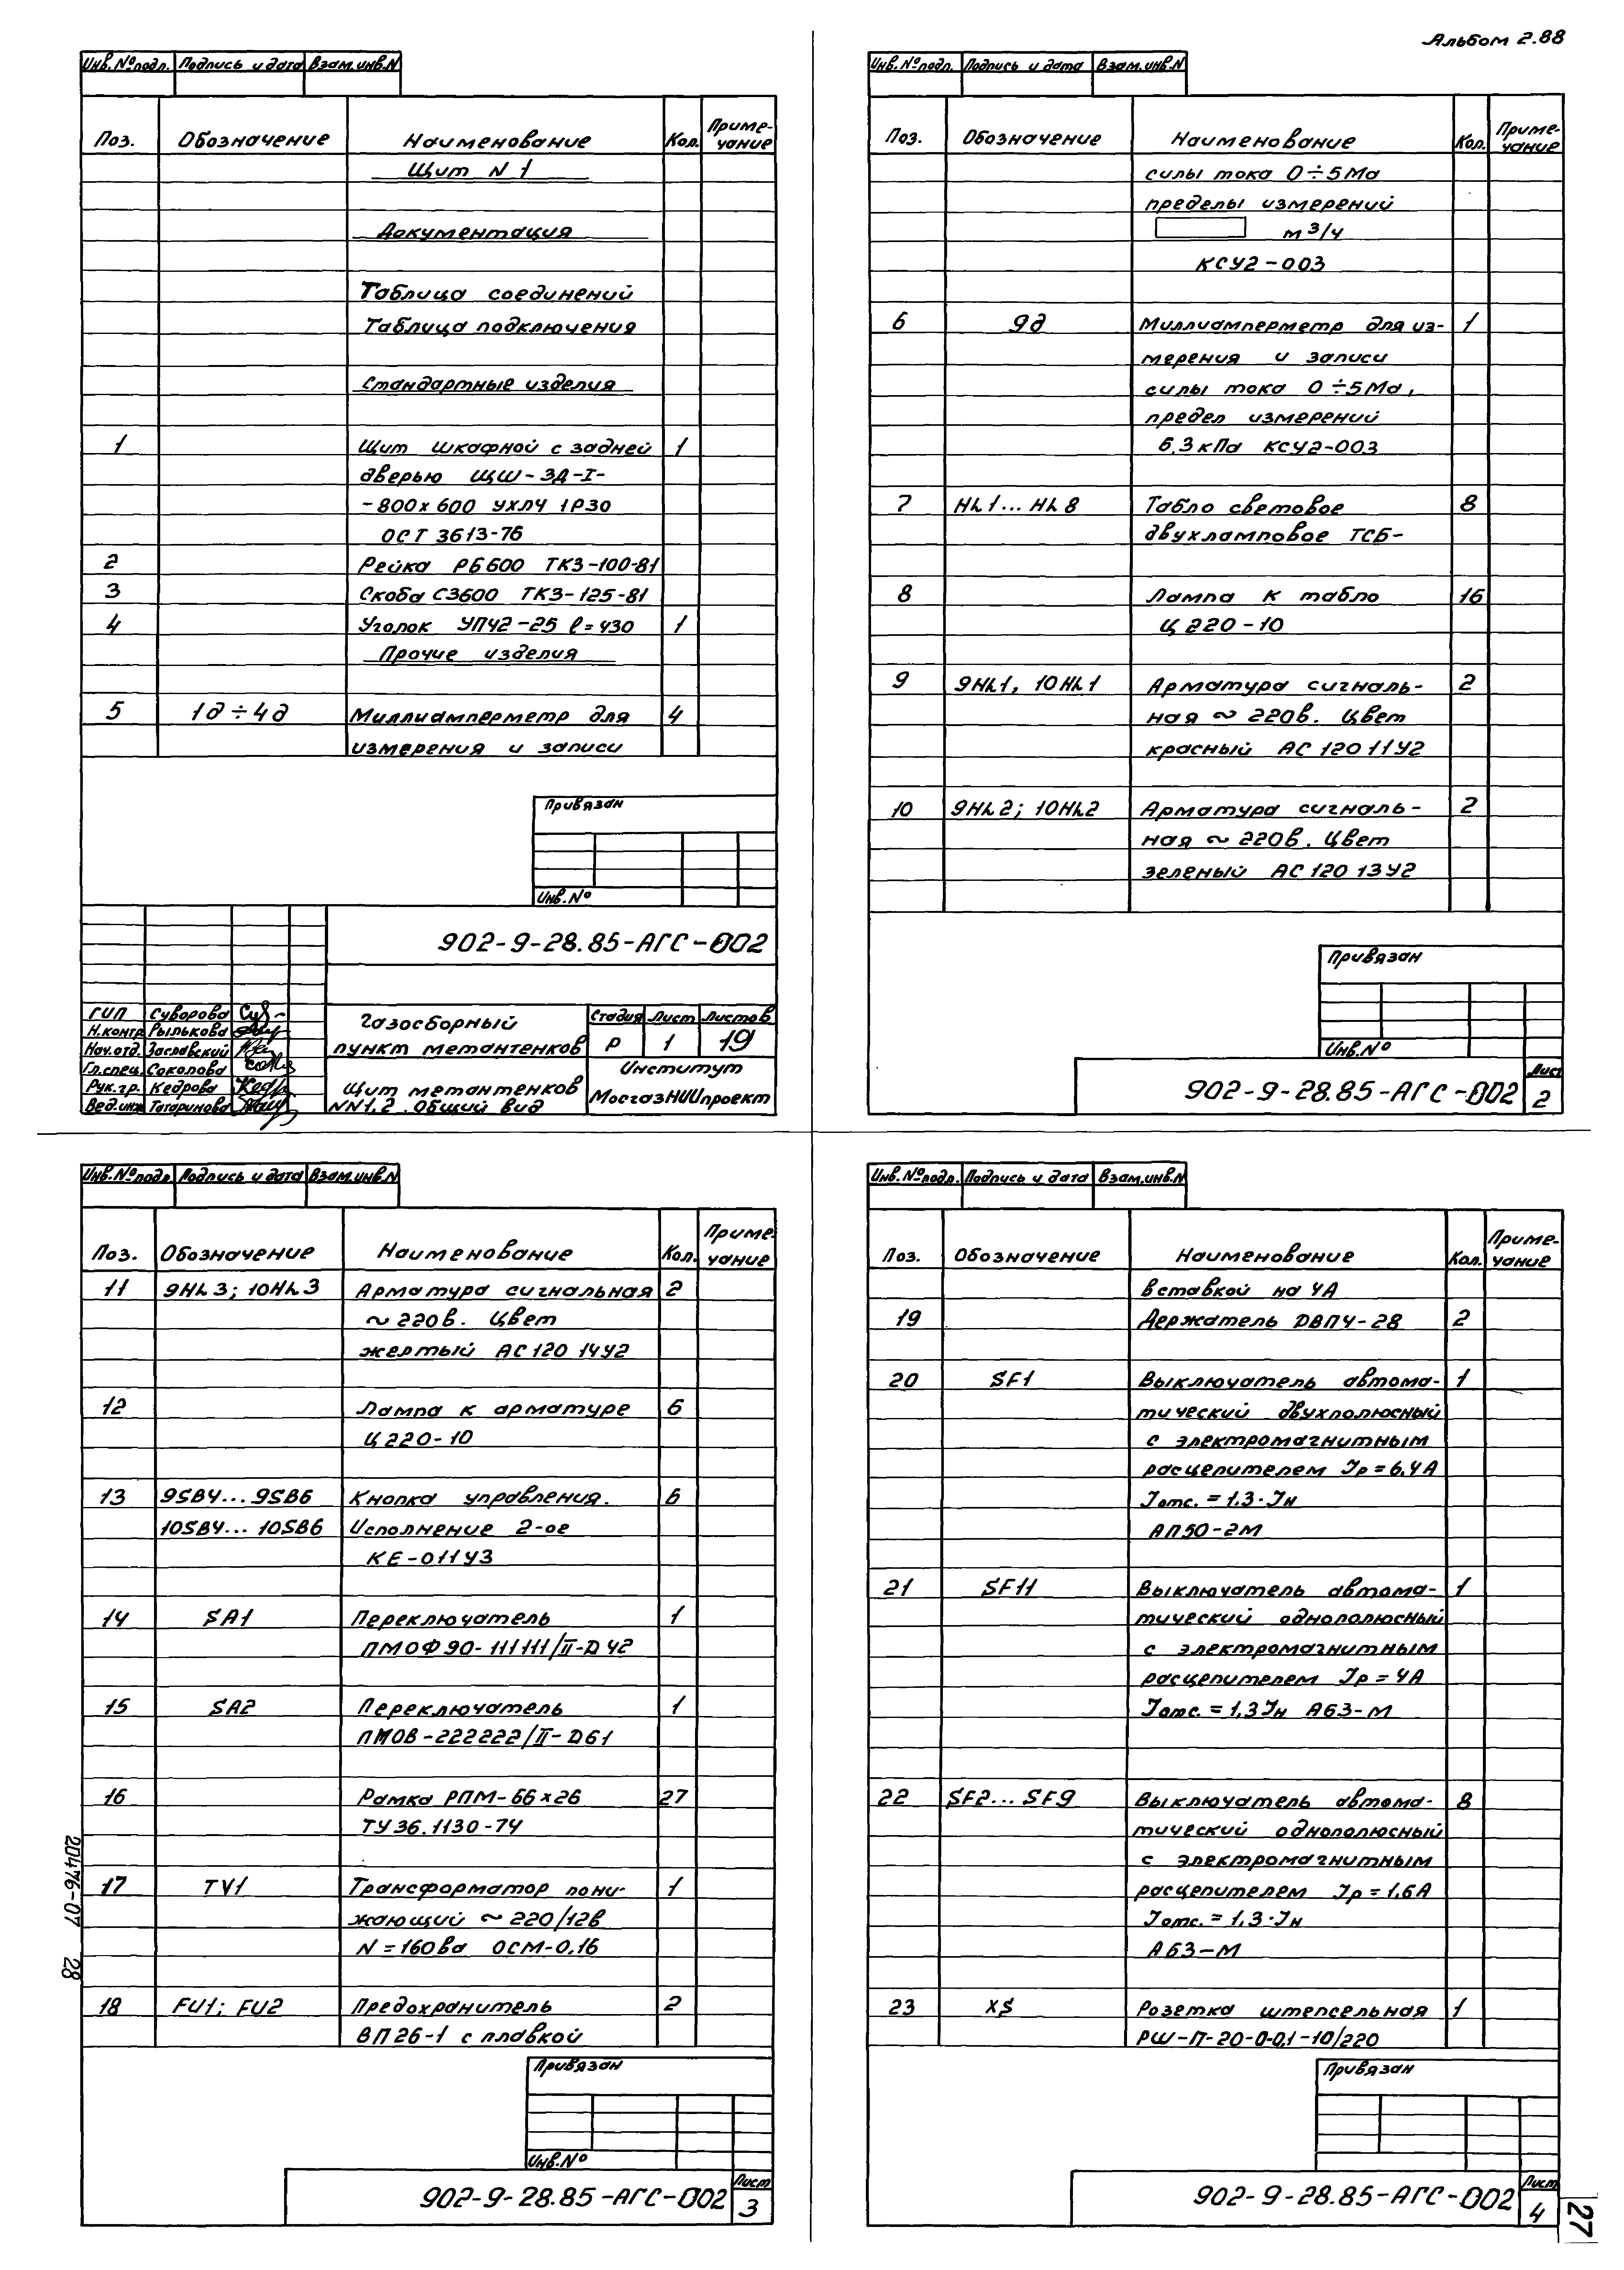 Альбом 2.88
Инв.№подл. Подпись и дата Взам.инв.N
Поз. Обозначение Наименование Кол. Примечание
Щит N 1
Документация
Таблица соединений
Таблица подключения
Стандартные изделия
1 Щит шкафной с задней 1
дверью ЩШ-ЗД-I-
-800х600 УХЛ4 1Р30
ОСТ 3613-76
2 Рейка РБ600 ТК3-100-81
3 Скоба С3600 ТК3-125-81
4 Уголок УП42-25 ℓ=430 1
Прочие изделия
5 1д÷4д Миллиамперметр для 4
измерения и записи
Привязан
Инв.№
902-9-28.85-АГС-002
ГИП Суворова
Н.контр Рылькова
Нач.отд. Заславский
Гл.спец. Соколова
Рук.гр. Кедрова
Вед.инж Татаринова
Газосборный
пункт метантенков
Щит метантенков
NN1,2. Общий вид
Стадия Лист Листов
Р 1 19
Институт
МосгазНИИпроект
Инв.№подл. Подпись и дата Взам.инв.N
Поз. Обозначение Наименование Кол. Примечание
силы тока 0÷5Ма
пределы измерений
м³/ч
КСУ2-003
6 9д Миллиамперметр для из- 1
мерения и записи
силы тока 0÷5Ма,
предел измерений
6.3 кПа КСУ2-003
7 HL1...HL8 Табло световое 8
двухламповое ТСБ-
8 Лампа к табло 16
Ц 220-10
9 9HL1, 10HL1 Арматура сигналь- 2
ная ~ 220в. Цвет
красный АС 120 11У2
10 9HL2; 10HL2 Арматура сигналь- 2
ная ~ 220в. Цвет
зеленый АС 120 13У2
Привязан
Инв.№
902-9-28.85-АГС-002
Лист
2
Инв.№подл Подпись и дата Взам.инв.N
Поз. Обозначение Наименование Кол. Примечание
11 9HL3; 10HL3 Арматура сигнальная 2
~ 220в. Цвет
желтый АС 120 14У2
12 Лампа к арматуре 6
Ц 220-10
13 9SB4...9SB6 Кнопка управления. 6
10SB4...10SB6 Исполнение 2-ое
КЕ-011У3
14 SA1 Переключатель 1
ПМОФ90-111111/II-Д42
15 SA2 Переключатель 1
ПМОВ-222222/II-Д61
16 Рамка РПМ-66×26 27
ТУ36.1130-74
17 TV1 Трансформатор пони- 1
жающий ~ 220/12в
N=160ва ОСМ-0.16
18 FU1; FU2 Предохранитель 2
ВП26-1 с плавкой
Привязан
Инв.№
902-9-28.85-АГС-002
Лист
3
20476-07 28
Инв.№подл. Подпись и дата Взам.инв.N
Поз. Обозначение Наименование Кол. Примечание
вставкой на 4А
19 Держатель ДВП4-28 2
20 SF1 Выключатель автома- 1
тический двухполюсный
с электромагнитным
расцепителем Iр=6,4А
Iотс.=1,3·Iн
АП50-2М
21 SF11 Выключатель автома- 1
тический однополюсный
с электромагнитным
расцепителем Iр=4А
Iотс.=1,3Iн А63-М
22 SF2...SF9 Выключатель автома- 8
тический однополюсный
с электромагнитным
расцепителем Iр=1,6А
Iотс.=1,3·Iн
А63-М
23 XS Розетка штепсельная 1
РШ-П-20-0-0,1-10/220
Привязан
902-9-28.85-АГС-002
Лист
4
27